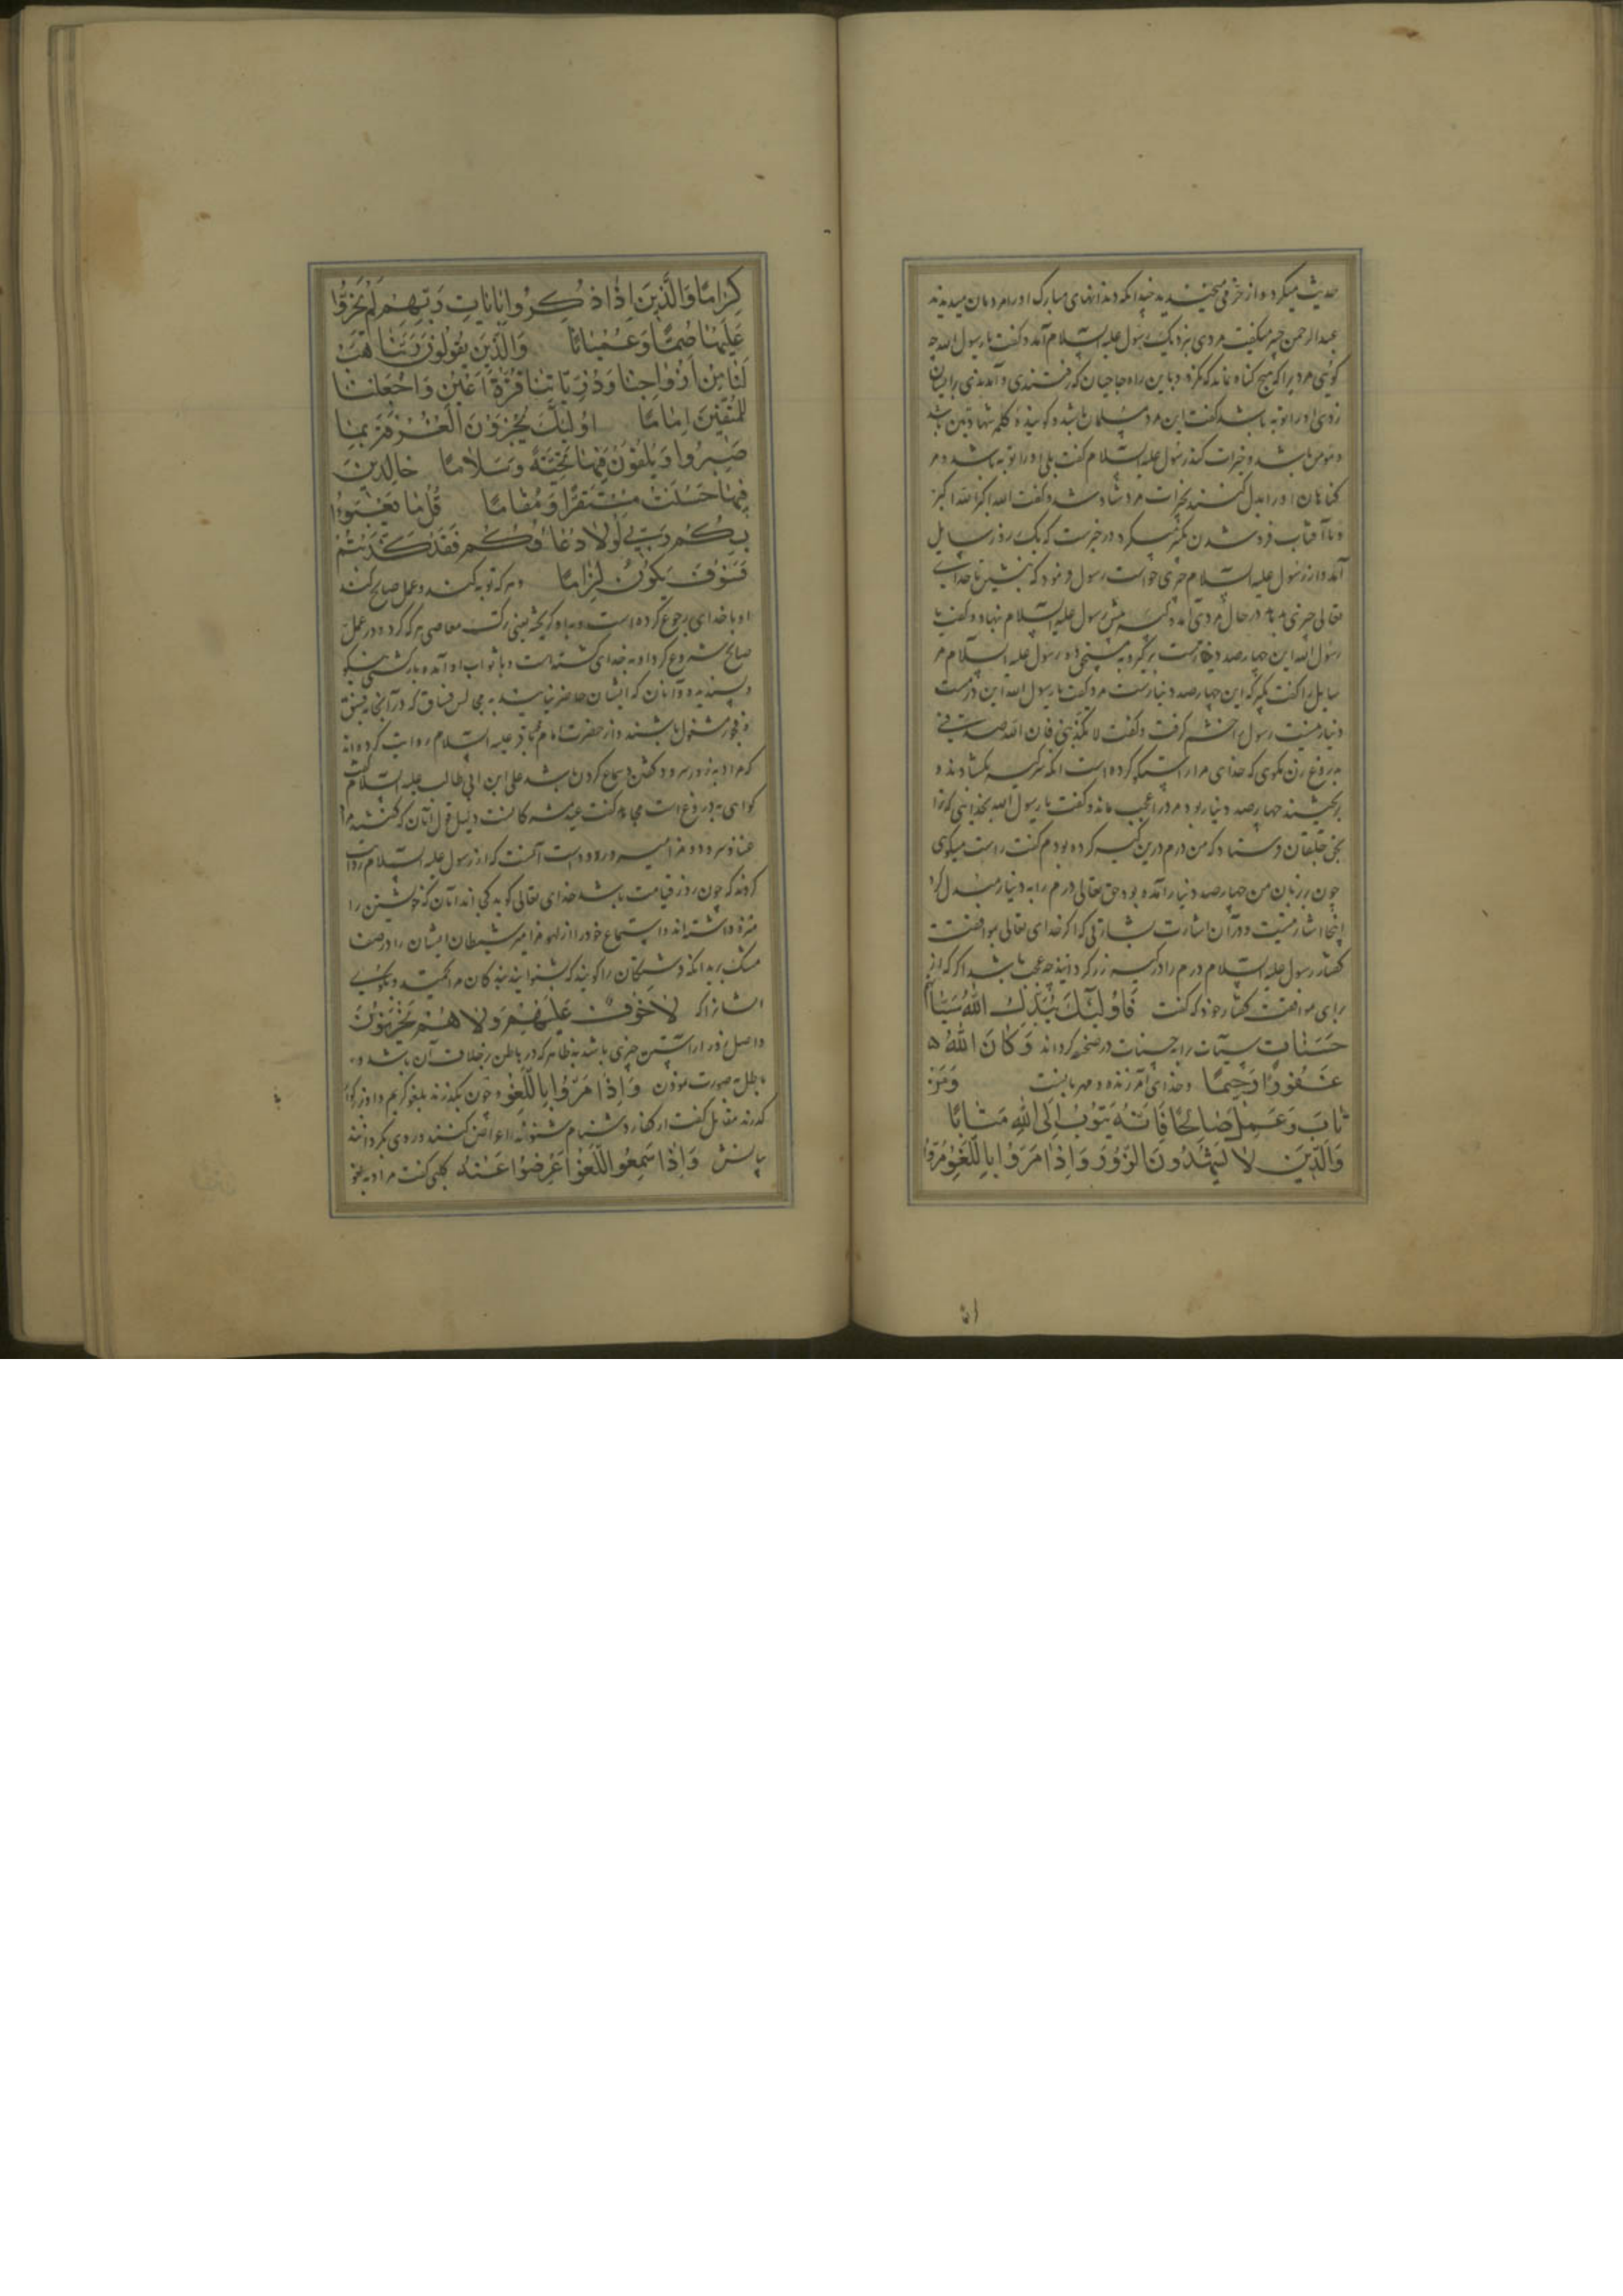 حدیث میکرد و از حرفی میخندید چندانکه دندانهای مبارک او را مردمان میدیدند
عبدالرحمن جبیر میگفت مردی بنزدیک رسول علیه السلام آمد و گفت یا رسول الله چه
گوئی مردیرا که هیچ گناه نماند که نکرد
زدی او را توبه باشد گفت این مرد مسلمان باشد و گویندهٔ کلمه شهادتین باشد
و مؤمن باشد و خیرات کند رسول علیه السلام گفت بلی او را توبه باشد و
گناهان او را بدل کنند بخیرات مرد شاد شد و گفت الله اکبر الله اکبر
و تا آفتاب فرو شدن تکبیر میکرد و در خبرست که یک روز سایل
آمد و از رسول علیه السلام چیزی خواست رسول فرمود که بنشین تا خدای
تعالی چیزی بدهد در حال مردی آمد و کیسه پیش رسول علیه السلام نهاد و گفت یا
رسول الله این چهارصد درمست برگیر و به مستحق ده رسول علیه السلام مر
سایل را گفت بگیر که این چهارصد دینارست مرد گفت یا رسول الله این درمست
دینار نیست رسول خشم گرفت و گفت لا تکذبنی فان الله صدقنی
دروغ زن مگوی که خدای مرا راستگو کرده است آنگه سر کیسه بگشادند و
چهارصد دینار بود مرد را عجب ماند و گفت یا رسول الله بخدایی که ترا
بحق بخلقان فرستاد که من درم درین کیسه کرده بودم گفت راست میگوی
چون بر زبان من چهارصد دینار آمده بود حق تعالی درم را به دینار مبدل کرد
اینجا اشارتیست و در آن اشارت بشارتی که اگر خدای تعالی موافقت
گفتار رسول علیه السلام درم را در کیسه زر گرداند چه عجب باشد اگر که از
برای موافقت گفتار خود که گفت فَاُولٰئِکَ یُبَدِّلُ اللهُ سَیِّاٰتِهِم
حَسَنَاتٍ سیآت را به حسنات در صحیفه گرداند وَکَانَ اللهُ
غَفُورًا رَحِیمًا و خدای آمرزنده و مهربانست وَمَن
تَابَ وَعَمِلَ صَالِحًا فَاِنَّهُ یَتُوبُ اِلَی اللهِ مَتَابًا
وَالَّذِینَ لَا یَشْهَدُونَ الزُّورَ وَاِذَا مَرُّوا بِاللَّغْوِ مَرُّوا
کِرَامًا وَالَّذِینَ اِذَا ذُکِّرُوا بِاٰیَاتِ رَبِّهِمْ لَمْ یَخِرُّوا
عَلَیْهَا صُمًّا وَعُمْیَانًا وَالَّذِینَ یَقُولُونَ رَبَّنَا هَبْ
لَنَا مِنْ اَزْوَاجِنَا وَذُرِّیَّاتِنَا قُرَّةَ اَعْیُنٍ وَاجْعَلْنَا
لِلْمُتَّقِینَ اِمَامًا اُولٰئِکَ یُجْزَوْنَ الْغُرْفَةَ بِمَا
صَبَرُوا وَیُلَقَّوْنَ فِیهَا تَحِیَّةً وَسَلَامًا خَالِدِینَ
فِیهَا حَسُنَتْ مُسْتَقَرًّا وَمُقَامًا قُلْ مَا یَعْبَؤُا
بِکُمْ رَبِّی لَوْلَا دُعَاؤُکُمْ فَقَدْ کَذَّبْتُمْ
فَسَوْفَ یَکُونُ لِزَامًا و هر که توبه کند و عمل صالح کند
او با خدای رجوع کرده است و به او گریخته یعنی ترک معاصی هر که کرد و در عمل
صالح شروع کرد او به خدای گشته است و با ثواب او آمده بازگشتی نیکو
و پسندیده و آنان که ایشان حاضر نیایند به مجالس فساق که در آنجا به فسق
و فجور مشغول باشند و از حضرت امام محمد باقر علیه السلام روایت کرده‌اند
که مراد به زور سرود گفتن و سماع کردن باشد علی ابن ابی طالب علیه السلام گفت
گواهی به دروغ است مجاهد گفت
غنا و سرود و مزامیر و رود است آنست که از رسول علیه السلام روایت
کردند که چون روز قیامت باشد خدای تعالی گوید کجا اند آنان که خویشتن را
منزه داشته‌اند و استماع خود را از لهو و مزامیر شیطان ایشان را در
مشک برید آنگه فرشتگان را گویند که بشنوانید بندگان مرا
ایشان را که لَا خَوْفٌ عَلَیْهِمْ وَلَا هُمْ یَحْزَنُونَ
و اصل زور آراستن چیزی باشد به ظاهر که در باطن بخلاف آن باشد و
باطل به صورت وَاِذَا مَرُّوا بِاللَّغْوِ و چون بگذرند بلغو کریم وار
گذرند مقاتل گفت از کفار دشنام شنوند اعراض کنند و روی بگردانند
بیانش وَاِذَا سَمِعُوا اللَّغْوَ اَعْرَضُوا عَنْهُ کلبی گفت مراد به لغو